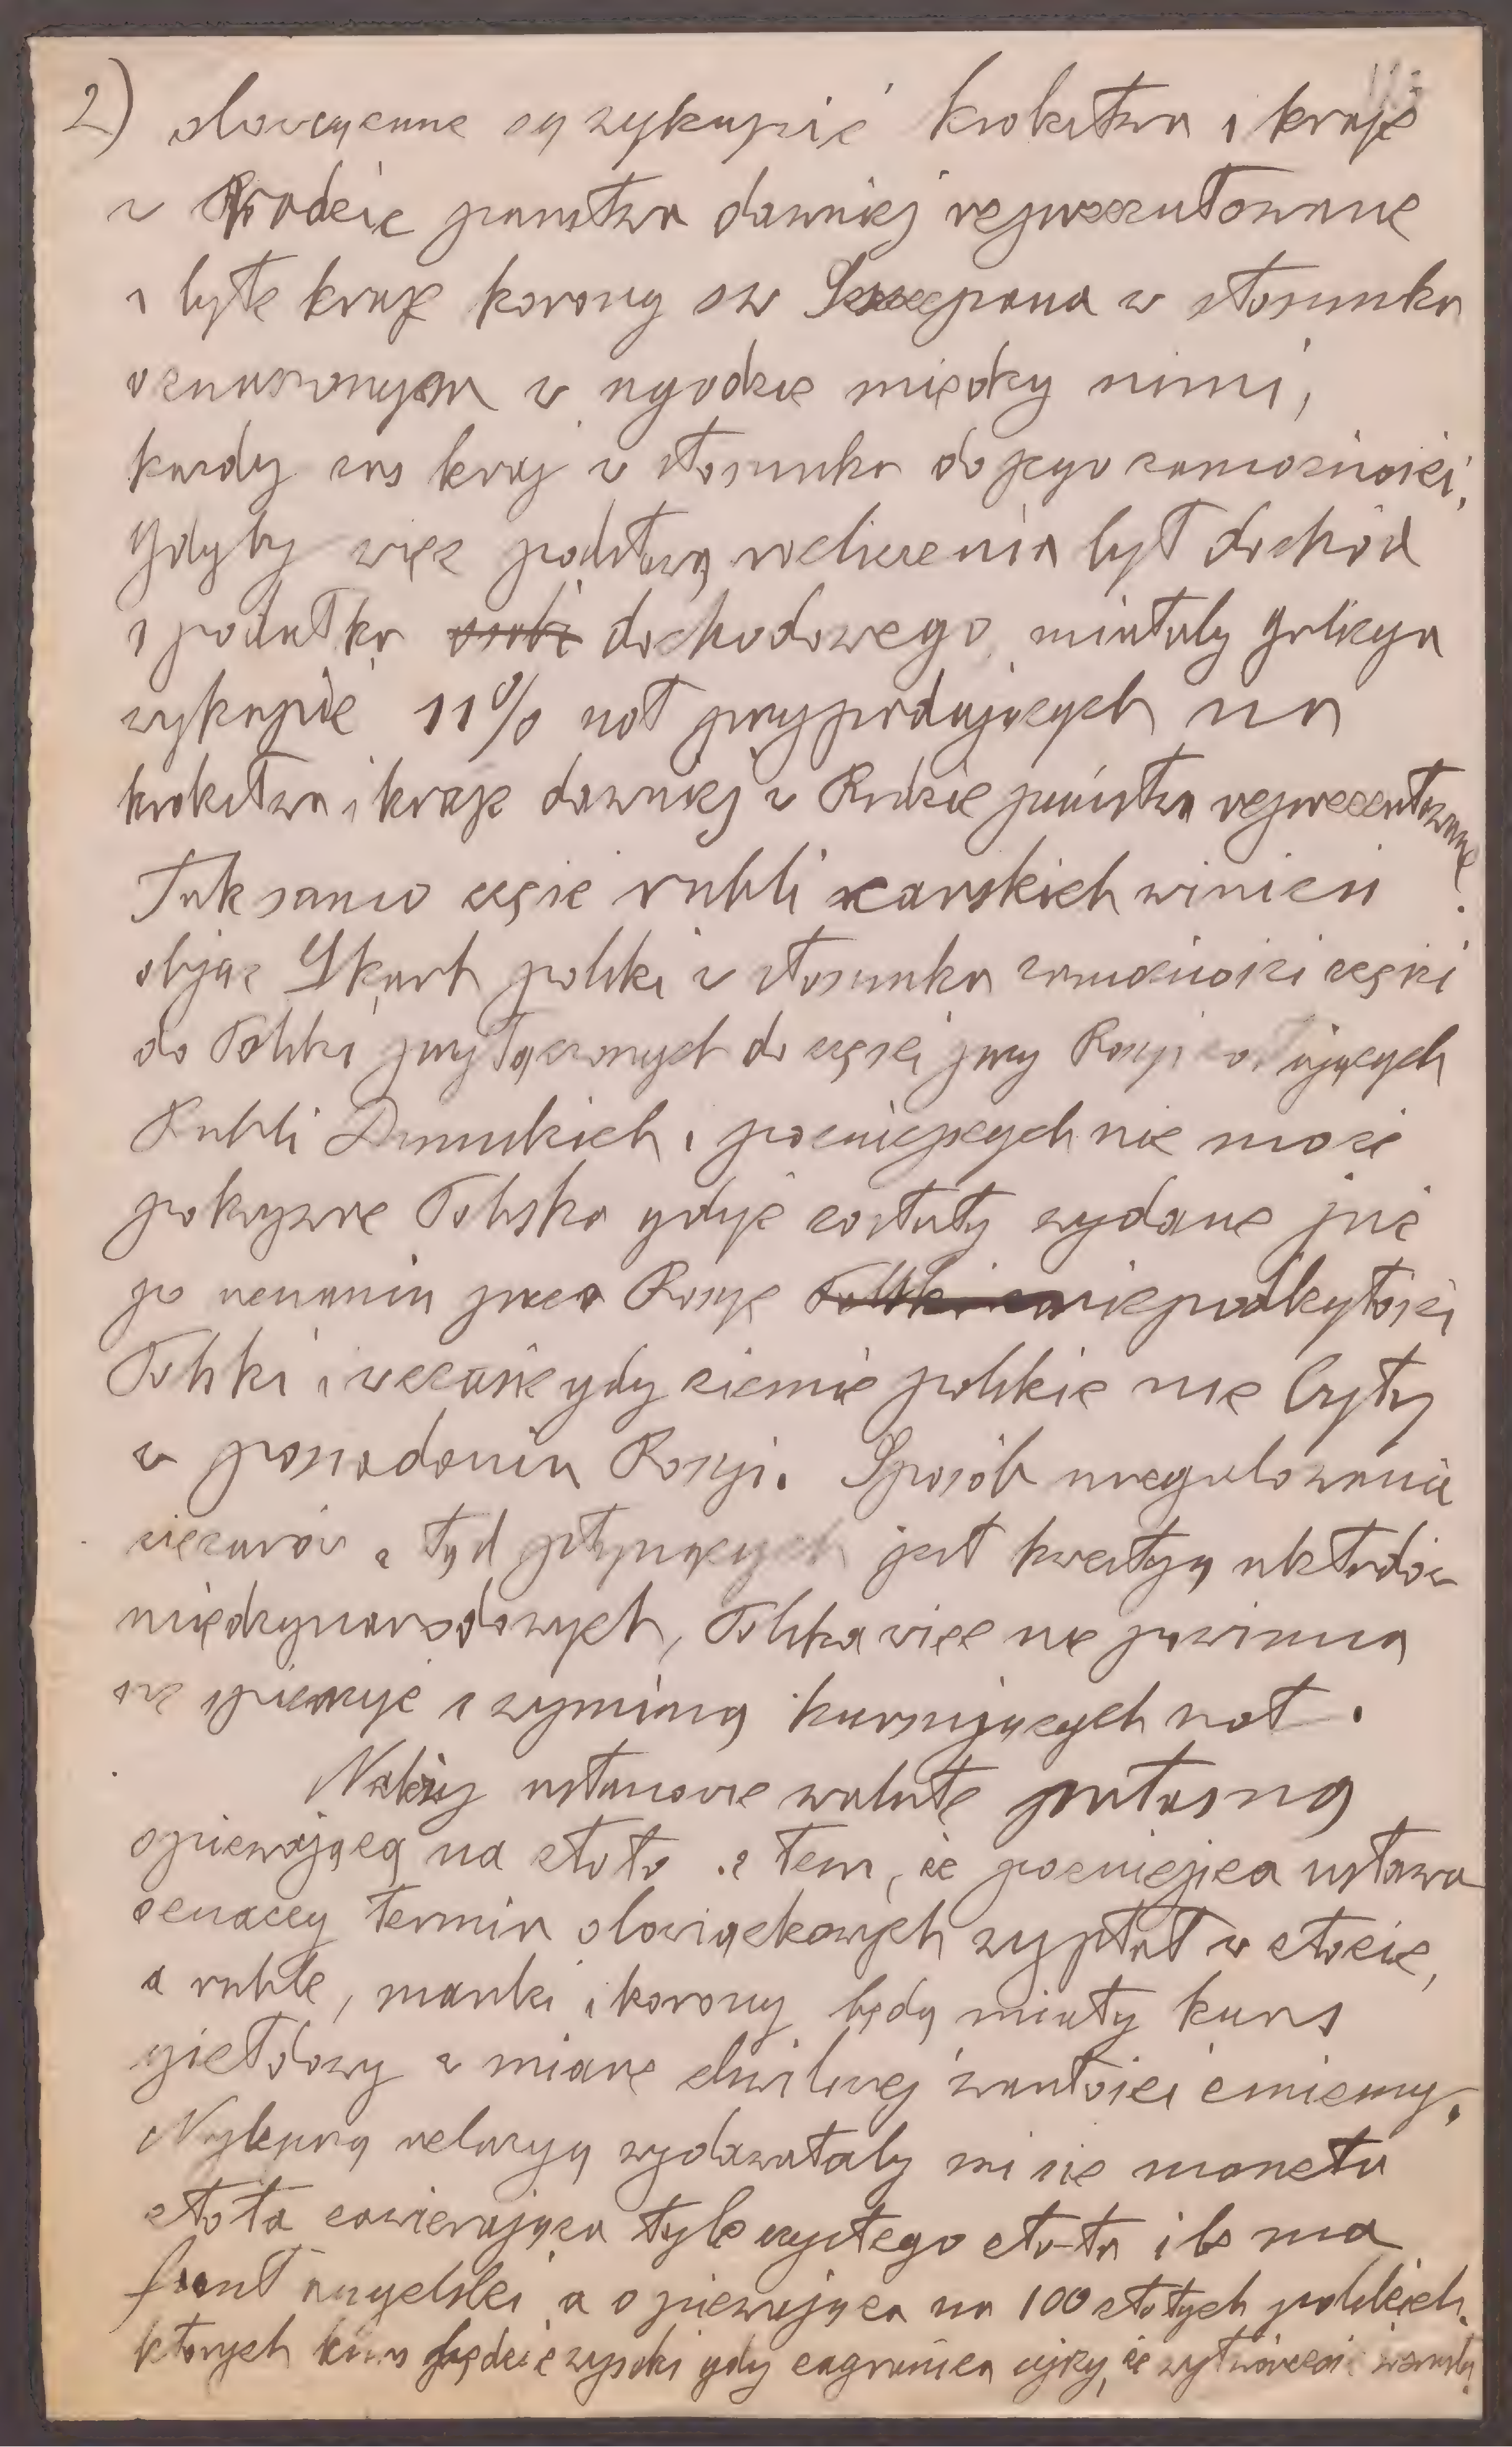 2) obowiązane są wykupić królestwa i kraje
w Radzie państwa dawniej reprezentowane
i byłe kraje korony św Szczepana w stosunku
oznaczonym w ugodzie między nimi,
każdy zaś kraj w stosunku do jego zamożności.
Gdyby więc podstawą rozliczenia był dochód
z podatku osobi dochodowego, miałaby Galicya
wykupić 11% not przypadających na
królestwa i kraje dawniej w Radzie państwa reprezentowane.
Tak samo część rubli carskich winien
objąć Skarb polski w stosunku zamożności części
do Polski przyłączonych do części przy Rosyi
Rubli Dumskich i późniejszych nie może
pokrywać Polska gdyż zostały wydane już
po uznaniu przez Rosyę niepodległości
Polski i w czasie gdy ziemie polskie nie były
w posiadaniu Rosyi. Sposób uregulowania
ciężarów z tąd płynących jest kwestyą układów
międzynarodowych, Polska więc nie powinna
się spieszyć z wymianą kursujących not.
Należy ustanowić walutę własną
opiewającą na złoto z tem, że późniejsza ustawa
oznaczy termin obowiązkowych wypłat w złocie,
a ruble, marki i korony będą miały kurs
giełdowy w miarę chwilowej wartości zmienny.
Najlepszą relacyą wydawałaby mi się moneta
złota zawierająca tyle czystego złota ile ma
funt angielski a opiewająca na 100 złotych polskich,
których kurs będzie wysoki gdy zagranica ujrzy, że wytwórczość wzrasta